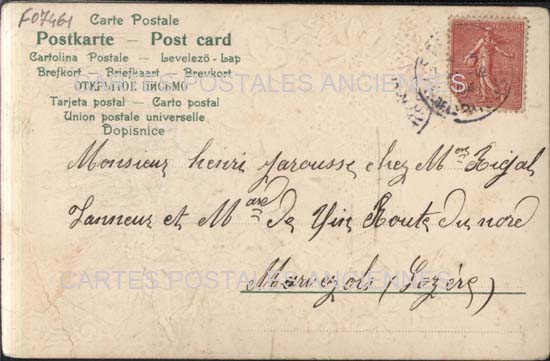 F07461
Carte Postale
Postkarte — Post card
Cartolina Postale — Levelező-Lap
Brefkort — Briefkaart — Brevkort
ОТКРЫТОЕ ПИСЬМО
CARTES POSTALES ANCIENNES
Tarjeta postal — Carto postal
Union postale universelle
Dopisnice
Monsieur henri Jarousse chez Mor Rigal
Tanneur et Md de Vin Route du nord
CARTES POSTALES ANCIENNES
Marvejols (Lozère)